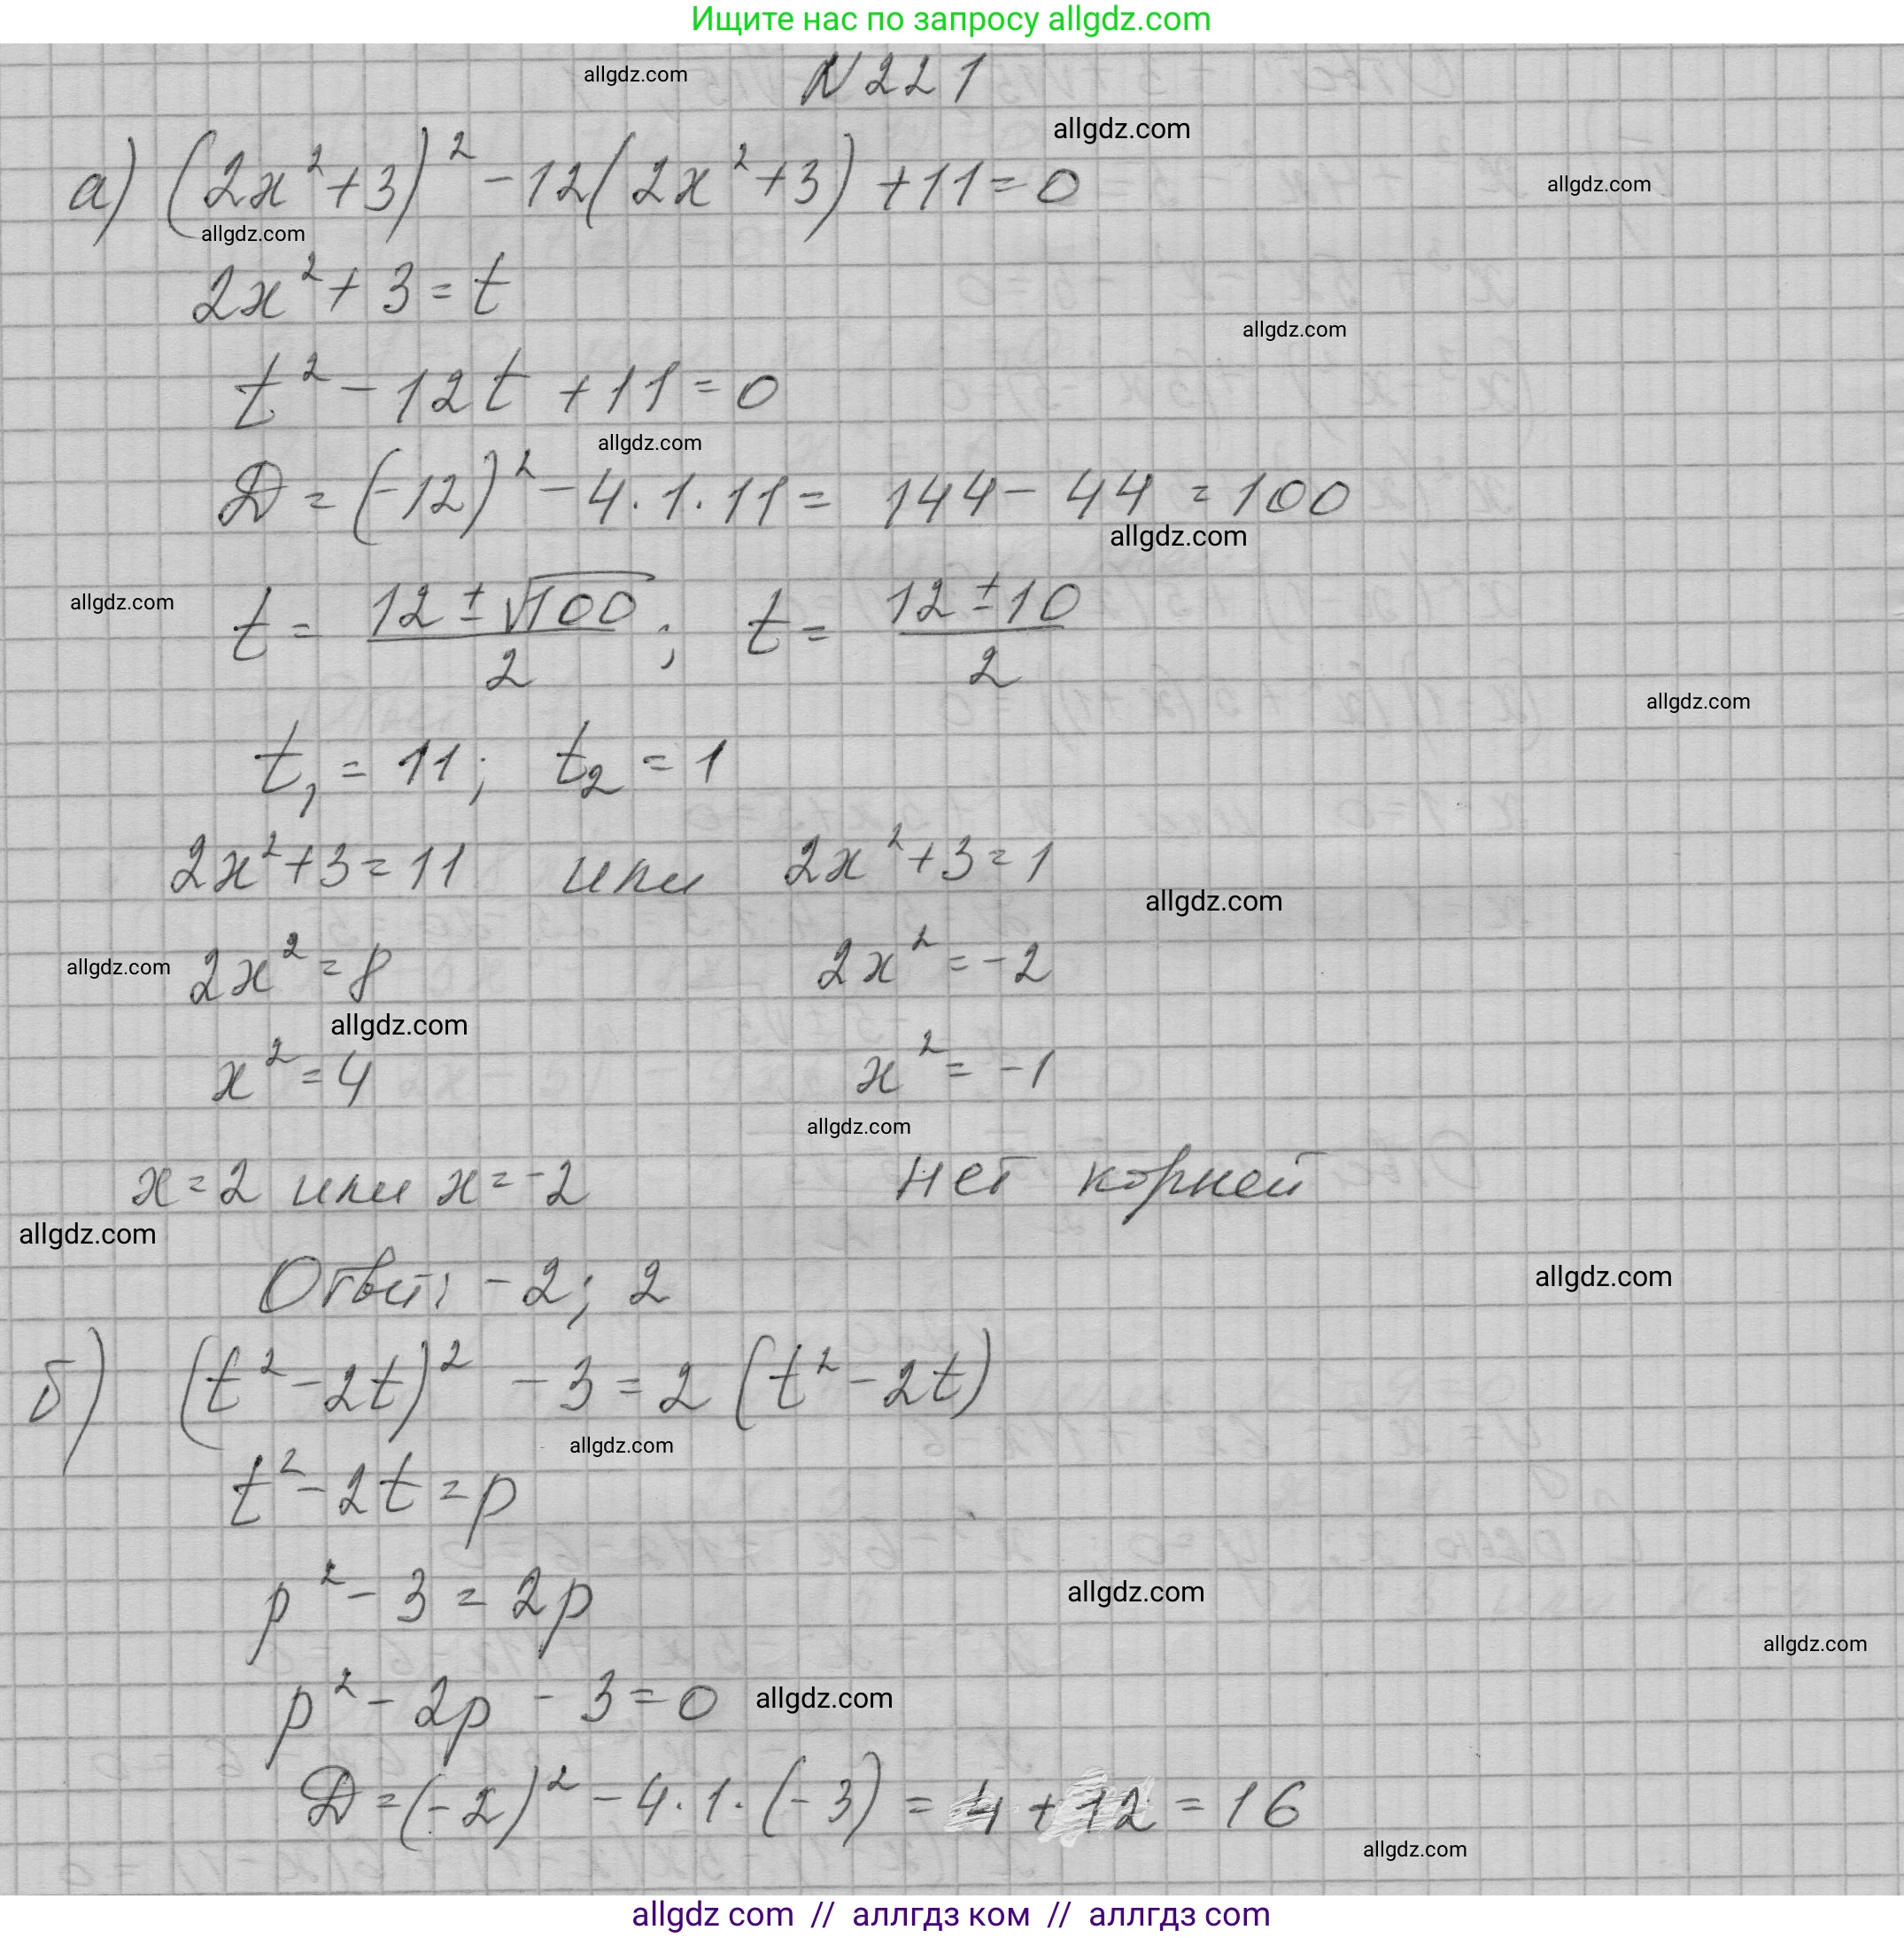 Ищите нас по запросу allgdz.com
allgdz.com
N 221
allgdz.com
allgdz.com
а) (2x²+3)² - 12(2x²+3) + 11 = 0
allgdz.com
2x² + 3 = t
allgdz.com
t² - 12t + 11 = 0
allgdz.com
D = (-12)² - 4·1·11 = 144 - 44 = 100
allgdz.com
allgdz.com
t = (12 ± √100)/2 ; t = (12 ± 10)/2
allgdz.com
t₁ = 11; t₂ = 1
2x²+3 = 11 или 2x²+3 = 1
allgdz.com
allgdz.com
2x² = 8 2x² = -2
allgdz.com
x² = 4 x² = -1
allgdz.com
x = 2 или x = -2 нет корней
allgdz.com
allgdz.com
Ответ: -2; 2
б) (t² - 2t)² - 3 = 2 (t² - 2t)
allgdz.com
t² - 2t = p
allgdz.com
p² - 3 = 2p
allgdz.com
p² - 2p - 3 = 0 allgdz.com
D = (-2)² - 4·1·(-3) = 4 + 12 = 16
allgdz.com
allgdz com // аллгдз ком // аллгдз com